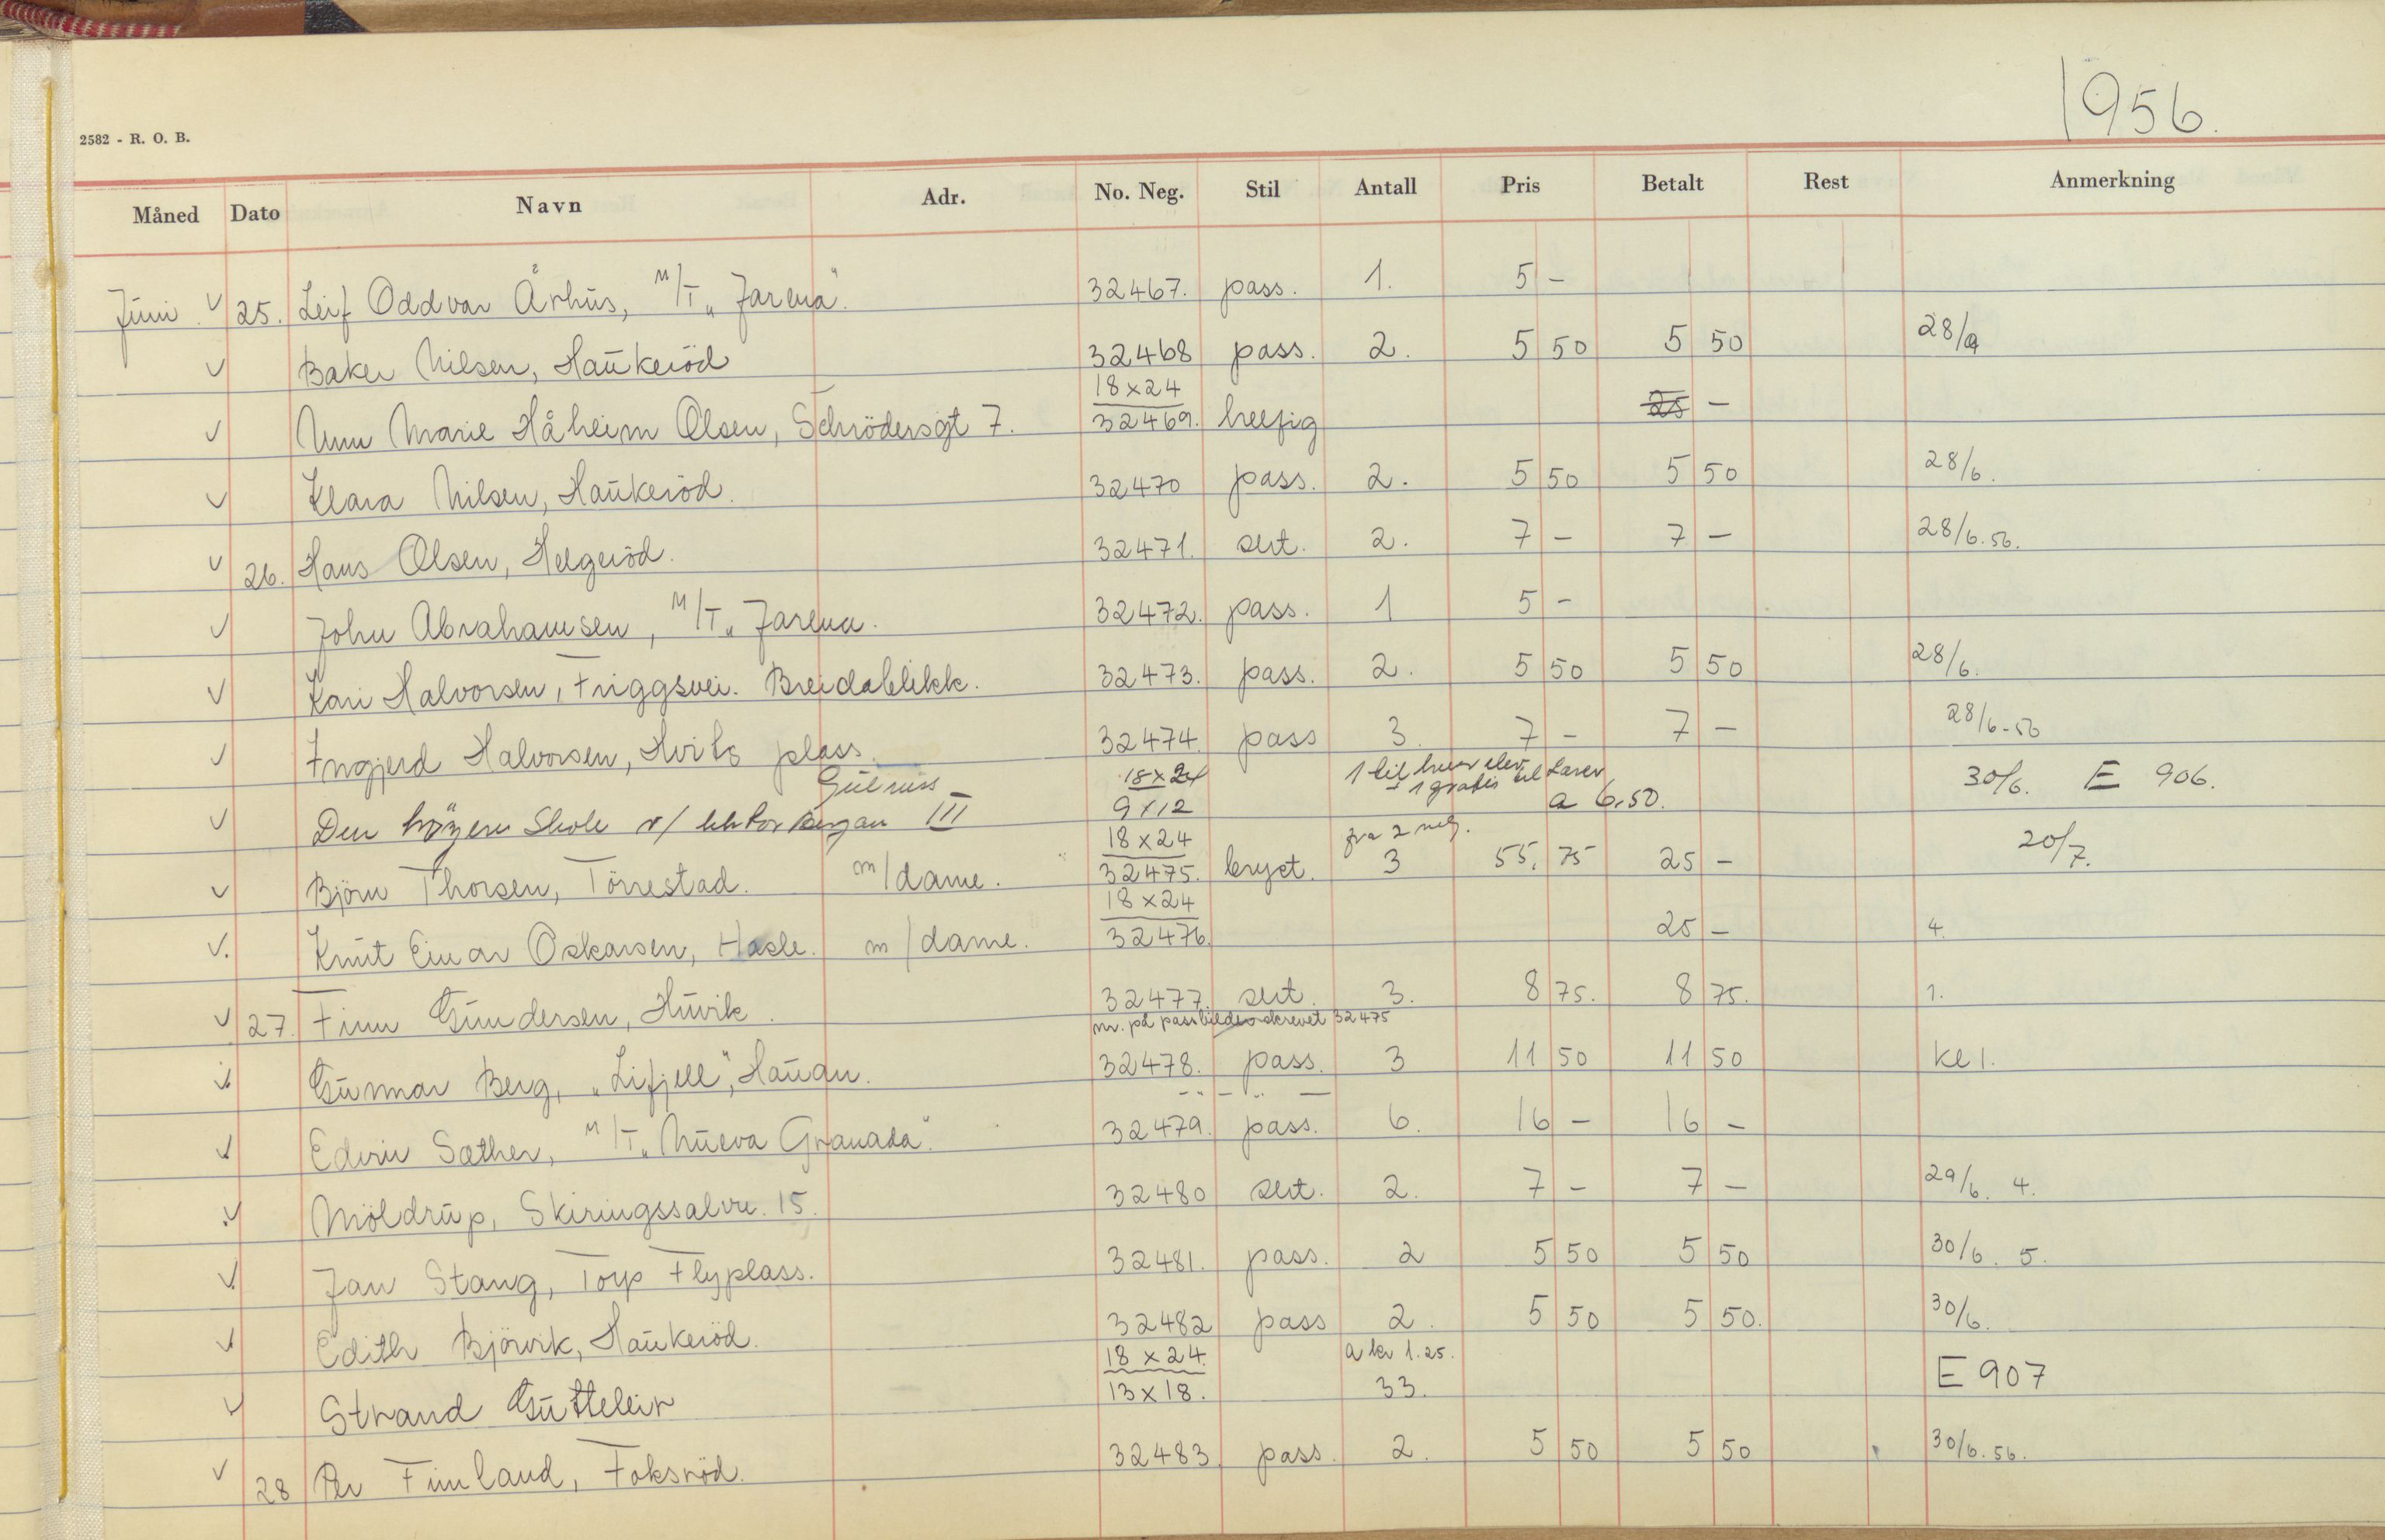 1956.
2582 - R. O. B.
Måned Dato Navn Adr. No. Neg. Stil Antall Pris Betalt Rest Anmerkning
Juni. ✓ 25. Leif Oddvar Århus, M/T „Jarena". 32467. pass. 1. 5 -
✓ Baker Nilsen, Haukeröd 32468 pass. 2. 5 50 5 50 28/
18x24
✓ Unn Marie Håheim Olsen, Schrödersgt 7. 32469. helfig 25 -
✓ Klara Nilsen, Haukeröd. 32470 pass. 2. 5 50 5 50 28/6.
✓ 26. Hans Olsen, Helgeröd. 32471. sert. 2. 7 - 7 - 28/6.56.
✓ John Abrahamsen, M/T „Jarena. 32472. pass. 1 5 -
✓ Kari Halvorsen, Friggsvei. Breidablikk. 32473. pass. 2. 5 50 5 50 28/6.
✓ Ingjerd Halvorsen, Hvits plass. 32474. pass 3. 7 - 7 - 28/6-56
18x24 1 til hver elev
+ 1 gratis til
✓ Den höyere Skole v/ lektor III 9x12 a 6.50. 30/6. E 906.
18x24 fra 2 neg.
✓ Björn Thorsen, Törrestad. m/dame. 32475. bryst. 3 55, 75 25 - 20/7.
18x24
✓. Knut Einar Oskarsen, Hasle. m/dame. 32476. 25 - 4.
✓ 27. Finn Gundersen, Huvik. 32477. sert. 3. 8 75. 8 75. 1.
nr. på passbilder skrevet 32475
✓ Gunnar Berg, „Lifjell", Haugan. 32478. pass. 3 11 50 11 50 kl 1.
- " - " -
✓ Edvin Sæther, M/T „Nueva Granada". 32479. pass. 6. 16 - 16 -
✓ Möldrup, Skiringssalvn. 15. 32480 sert. 2. 7 - 7 - 29/6. 4.
✓ Jan Stang, Torp Flyplass. 32481. pass. 2 5 50 5 50 30/6. 5.
✓ Edith Björvik, Haukeröd. 32482 pass 2. 5 50 5 50. 30/6.
18 x 24. a kr 1.25.
✓ Strand Gutteleir 13x18. 33. E 907
✓ 28 Per Finnland, Foksröd. 32483. pass. 2. 5 50 5 50 30/6.56.